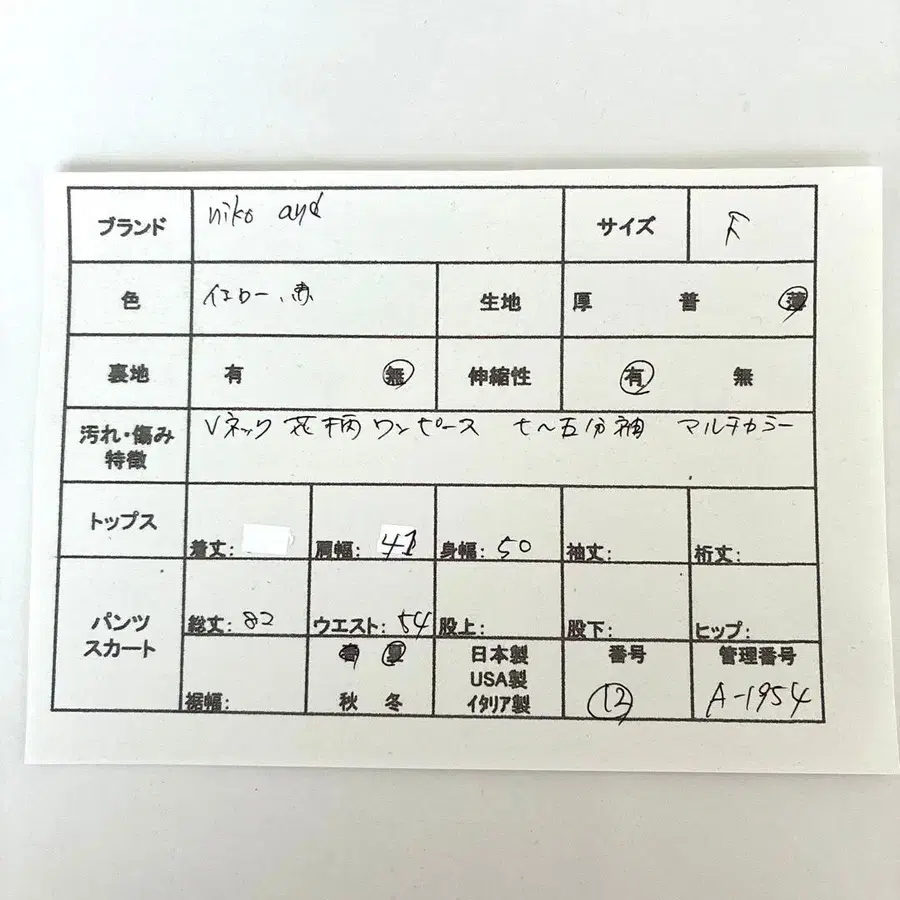 ブランド niko and サイズ F
色 イエロー、赤 生地 厚 普 薄
裏地 有 無 伸縮性 有 無
汚れ・傷み
特徴
Vネック 花柄ワンピース 七〜五分袖 マルチカラー
トップス
着丈: 肩幅: 41 身幅: 50 袖丈: 裄丈:
パンツ
スカート
総丈: 82 ウエスト: 54 股上: 股下: ヒップ:
裾幅:
春 夏
秋 冬
日本製
USA製
イタリア製
番号
12
管理番号
A-1954